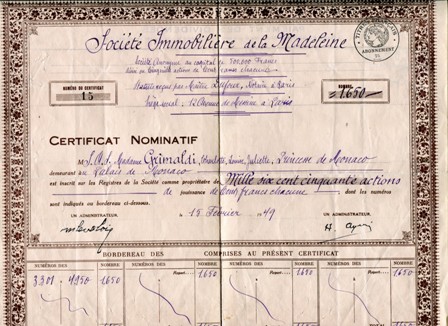 Société Immobilière de la Madeleine
Société Anonyme au capital de 500.000 Francs
divisé en cinquante actions de Cent francs chacune
Statuts reçus par Maître Dufour, Notaire à Paris
Siège social : 12 Avenue de Messine à Paris
ABONNEMENT
NUMÉRO DU CERTIFICAT
15
NUMBRE
1.650
CERTIFICAT NOMINATIF
M S.A.S. Madame Grimaldi, Charlotte, Louise, Juliette, Princesse de Monaco
demeurant au Palais de Monaco
est inscrit sur les Registres de la Société comme propriétaire de Mille six cent cinquante actions
de jouissance de Cent francs chacune dont les numéros
sont indiqués au bordereau ci-dessous.
UN ADMINISTRATEUR, le 19 Février 1949 UN ADMINISTRATEUR,
BORDEREAU DES COMPRISES AU PRÉSENT CERTIFICAT
NUMÉROS DES NOMBRE NUMÉROS DES NOMBRE NUMÉROS DES NOMBRE NUMÉROS DES NOMBRE
3.301 4950 1650 Report 1650 Report 1650 Report 1650